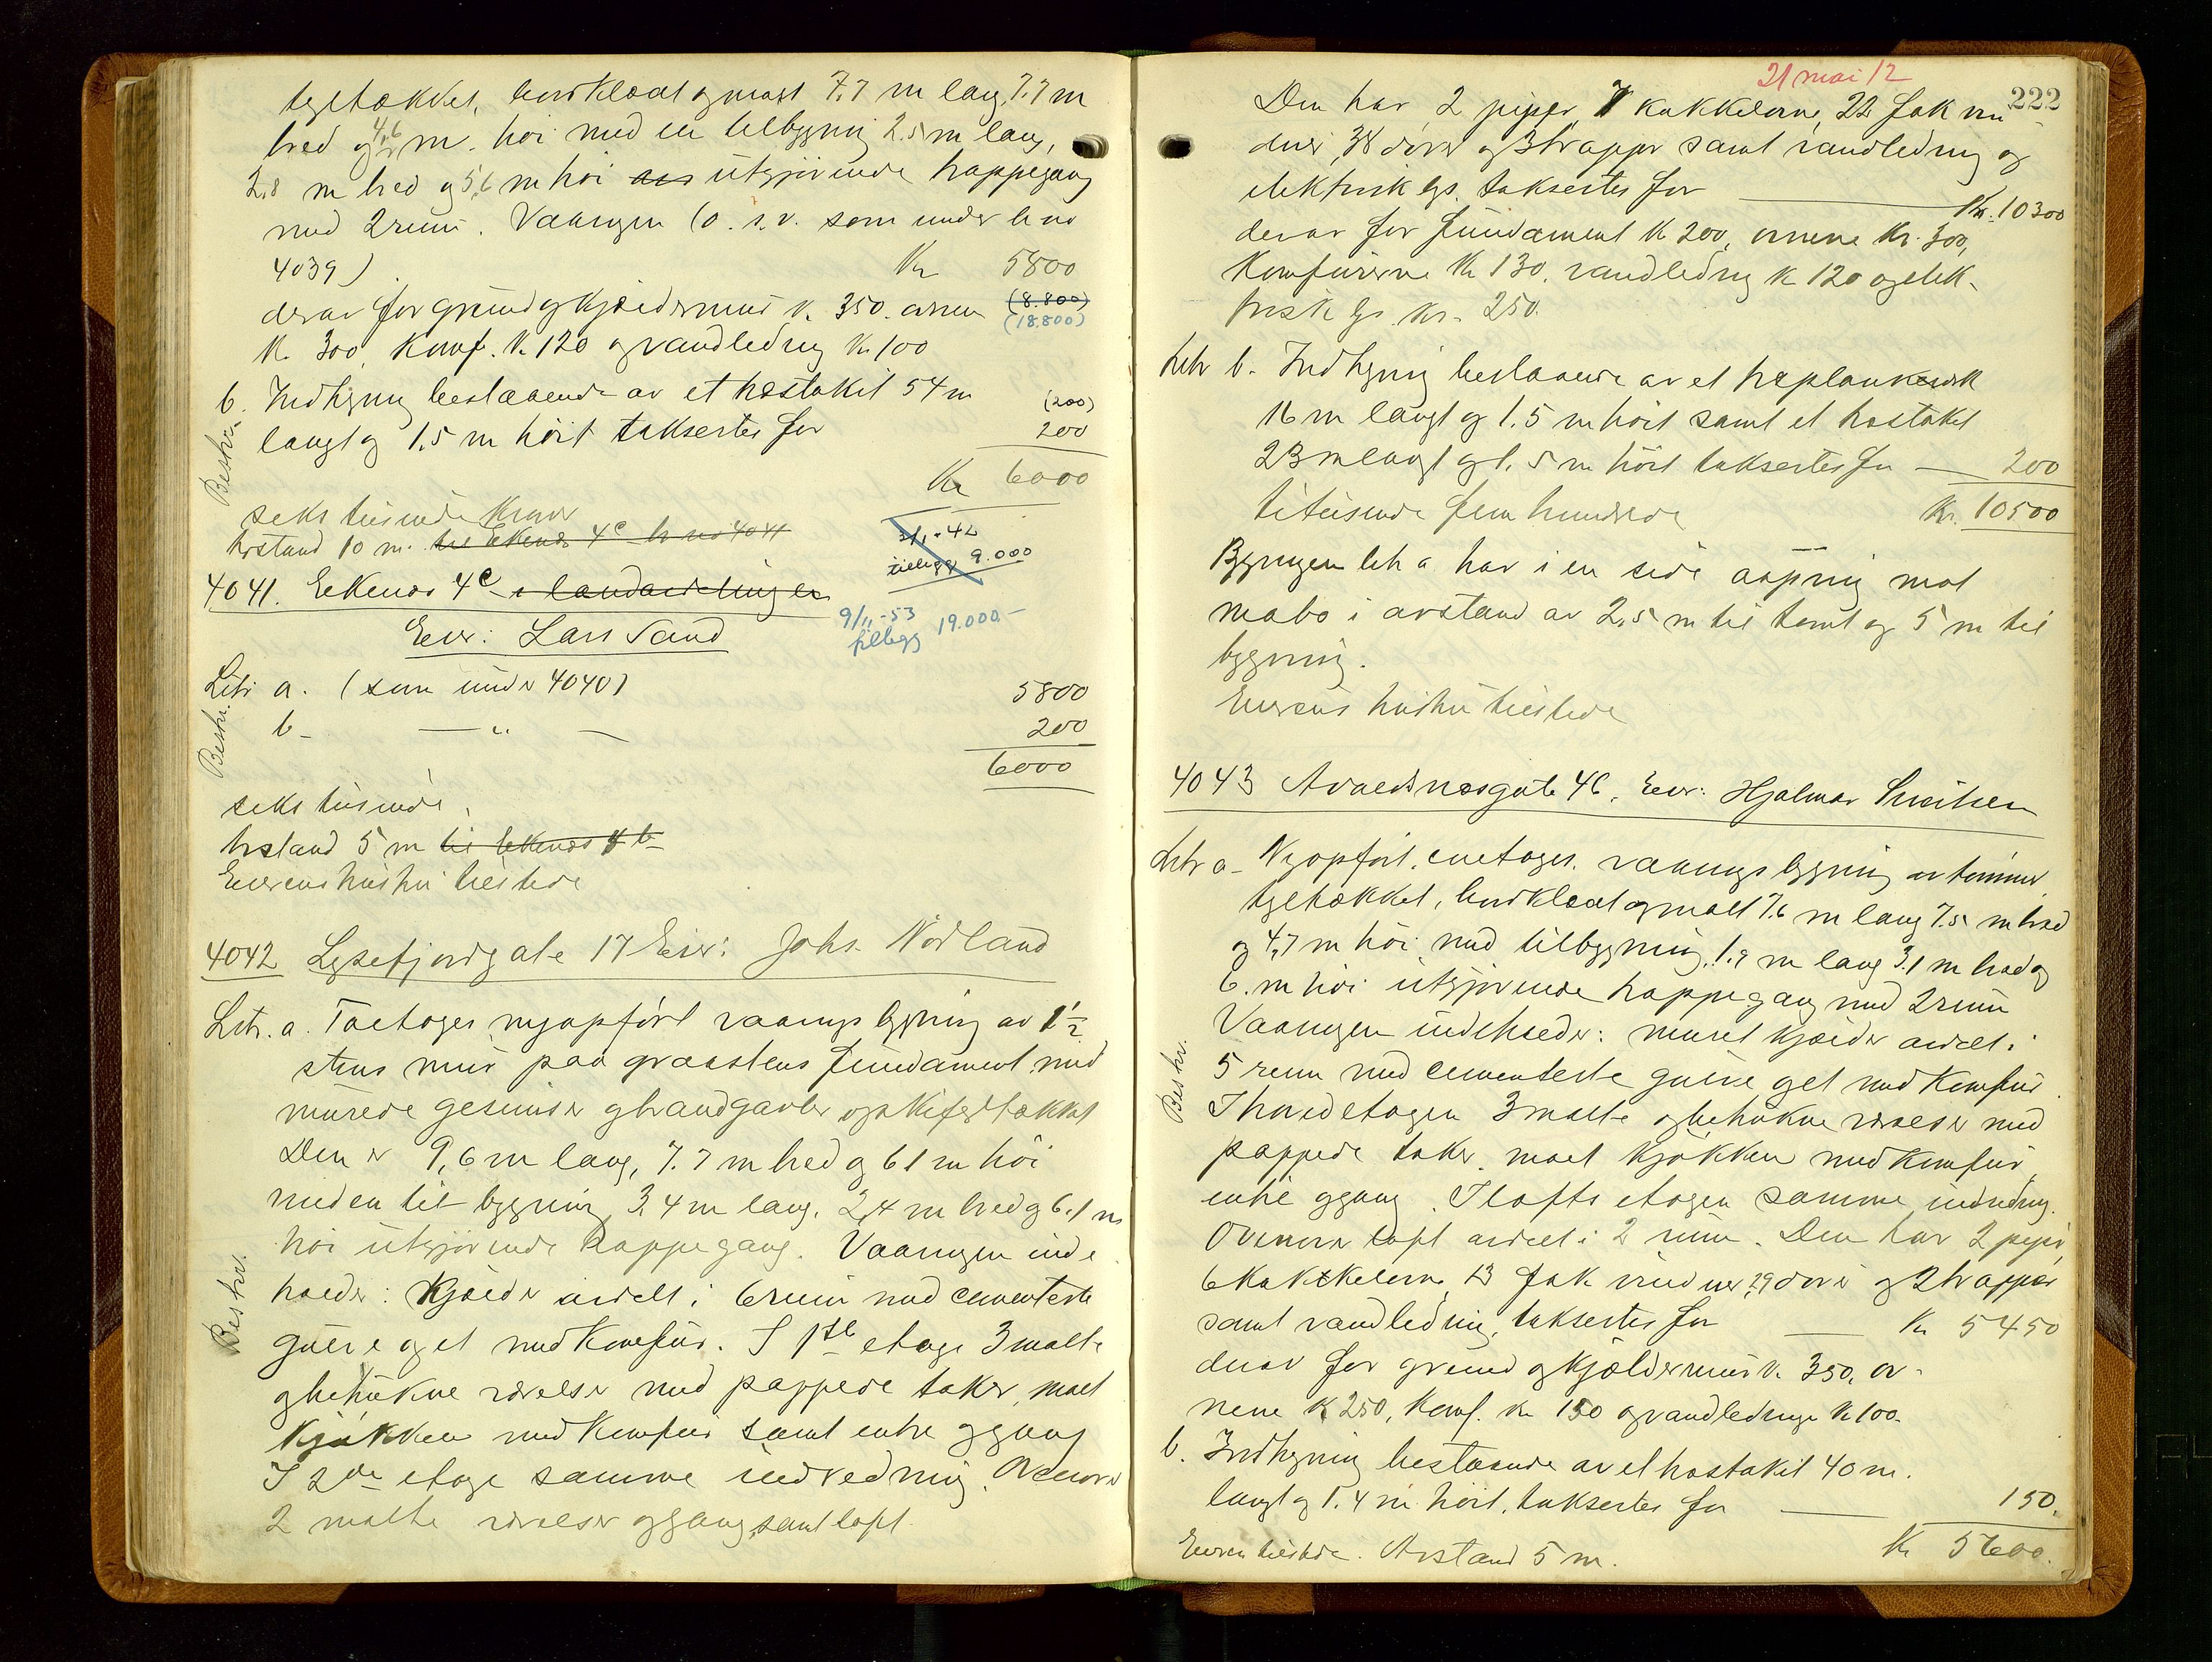 tegltækket, bordklædt og malt 7.7 m lang, 7.7 m
bred og 4,6 m. høi med en tilbygning 2.5 m lang,
2,8 m bred og 5,6 m høi utgjörende trappegang
med 2 rum. Vaaningen (o.s.v. som under br no
4039) Kr 5800
derav for grund og kjældermur k. 350. ovnen (8.800)
(18.800)
k. 300, komf. k. 120 og vandledning kr 100
b. Indhegning bestaaende av et hostakit 54 m (200)
langt og 1.5 m høit taksertes for 200
Beskr.
Kr 6000
seks tusinde kroner
Avstand 10 m. til Ekenæs 4c br no 4041
2/1-42
tillegg 9.000
4041. Eekenæs 4c i landavdelingen
9/11-53
tillegg 19.000.-
Eier: Lars Sand
Litr a. (som under 4040) 5800
b - — „ — 200
Beskr.
6000
seks tusinde,
Avstand 5 m til Eekenæs 4b
Eierens hustru tilstede
4042 Lysefjordgate 17 Eier: Johs. Nordland
Litr. a. Toetages nyopført vaaningsbygning av 1½
stens mur paa graastens fundament med
murede gesimser og brandgavler og skifertækket
Den er 9,6 m lang, 7.7 m bred og 6.1 m høi
med en tilbygning 3,4 m lang, 2,4 m bred og 6.1 m
høi utgjørende trappegang. Vaaningen inde
holder: Kjælder avdelt i 6 rum med cementerte
Beskr.
gulv og et med komfur. I 1ste etage 3 malte
og betrukne værelser med pappede taker, malt
kjøkken med komfur samt entre og gang
I 2den etage samme indredning. Ovenover
2 malte værelser og gang samt loft.
21 mai 12
222
Den har 2 piper, 7 kakkelovne, 22 fak vin
duer, 38 dører og 3 trapper samt vandledning og
elektrisk lys. taksertes for Kr. 10300
derav for fundament Kr 200, ovnene Kr. 300,
Komfurerne Kr 130. vandledning k 120 og elek-
trisk lys. Kr. 250.
Litr b. Indhegning bestaaende av et træplankeverk
16 m langt og 1.5 m høit samt et hostaket
23 m langt og 1.5 m høit taksertes for — 200
titusinde fem hundrede Kr. 10500
Bygningen litr a har i en side aapning mot
nabo i avstand av 2,5 m til tomt og 5 m til
bygning.
Eierens hustru tilstede
4043 Avaldsnesgate 46. Eier: Hjalmar
Litr a - Nyopført, enetages vaaningsbygning av tømmer
tegltækket, bordklædt og malt 7.6 m lang 7.5 m bred
og 4,7 m høi med tilbygning, 1.9 m lang 3.1 m bred og
6. m høi utgjørende trappegang med 2 rum
Vaaningen indeholder: muret kjælder avdelt i
Beskr.
5 rum med cementerte gulve og et med komfur.
I hovedetagen 3 malte og betrukne værelser med
pappede taker, malt kjøkken med komfur,
entre og gang. I loftsetagen samme indredning.
Ovenover loft avdelt i 2 rum. Den har 2 piper
6 kakkelovne, 13 fak vinduer, 29 dører og 2 trapper
samt vandledning, taksertes for — Kr 5450
derav for grund og kjældermur k. 350, ov-
nene k 250, komf. kr 150 og vandledninge k 100.
b. Indhegning bestaaende av et hostakit 40 m.
langt og 1.4 m høit, taksertes for — 150.
Eieren tilstede. Avstand 5 m. Kr 5600.